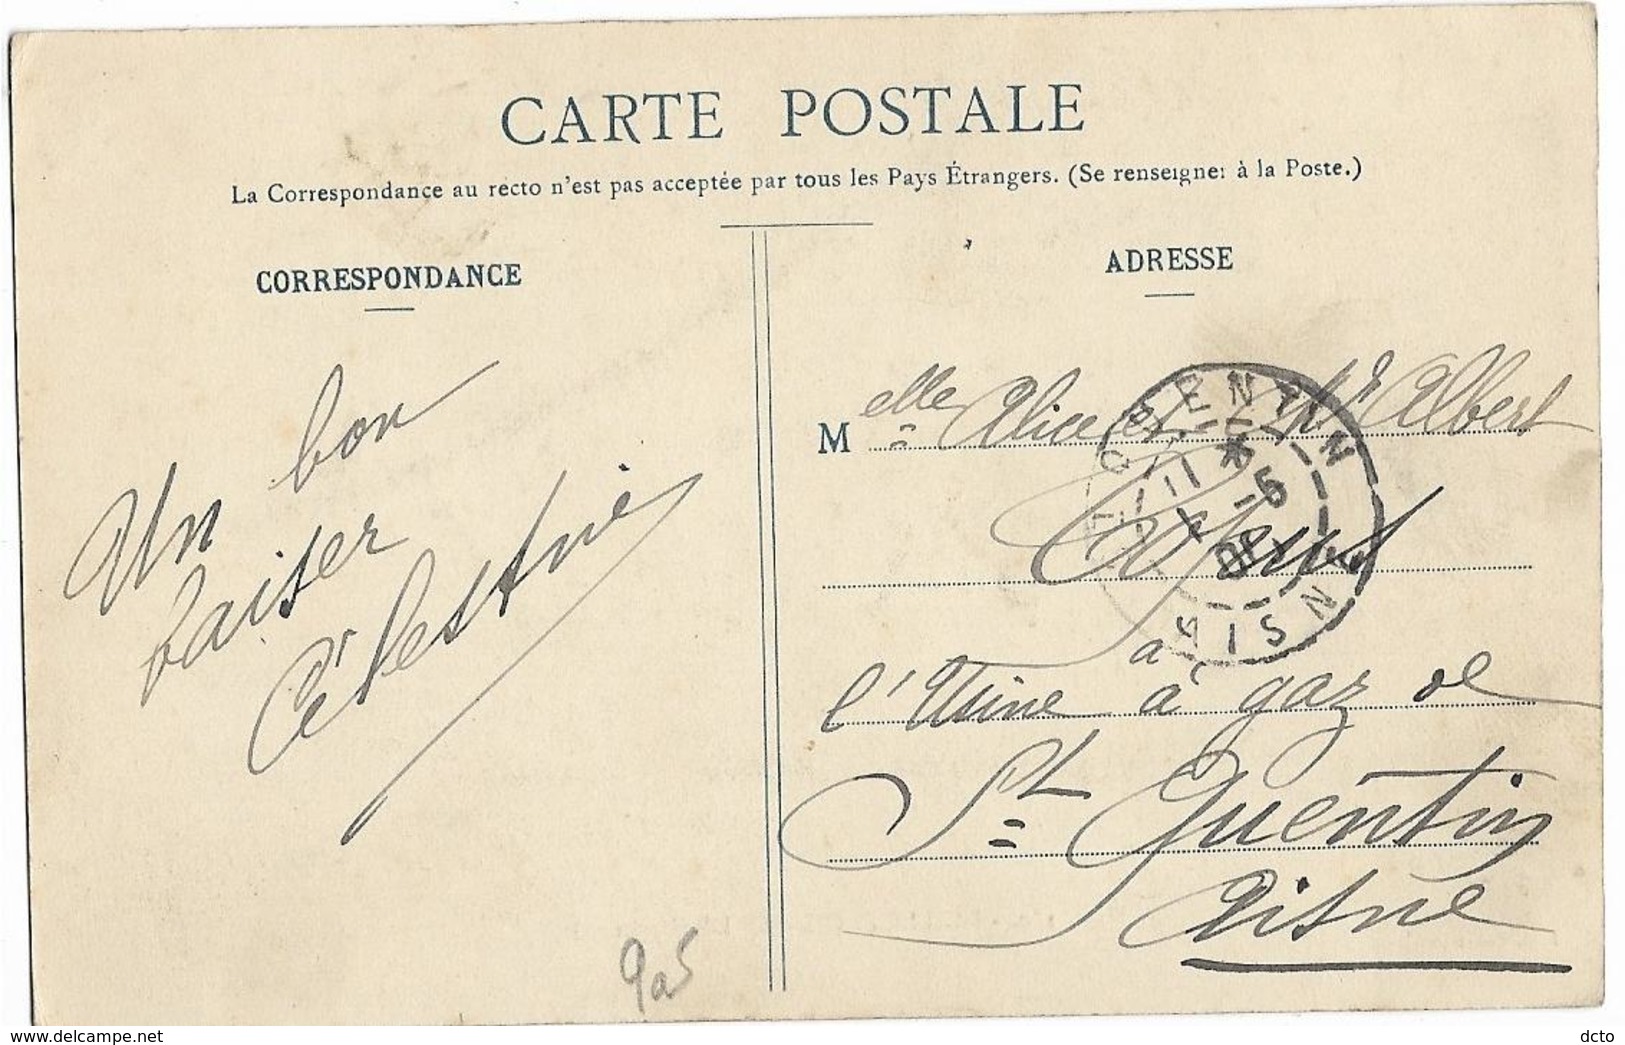 CARTE POSTALE
La Correspondance au recto n'est pas acceptée par tous les Pays Étrangers. (Se renseigner à la Poste.)
CORRESPONDANCE
ADRESSE
Un bon
baiser
Célestine
Melle Alice et Mr Albert
à
l'Usine à gaz de
St Quentin
Aisne
QUENTIN
AISNE
11
-5
9a5
delcampe.net
dcto